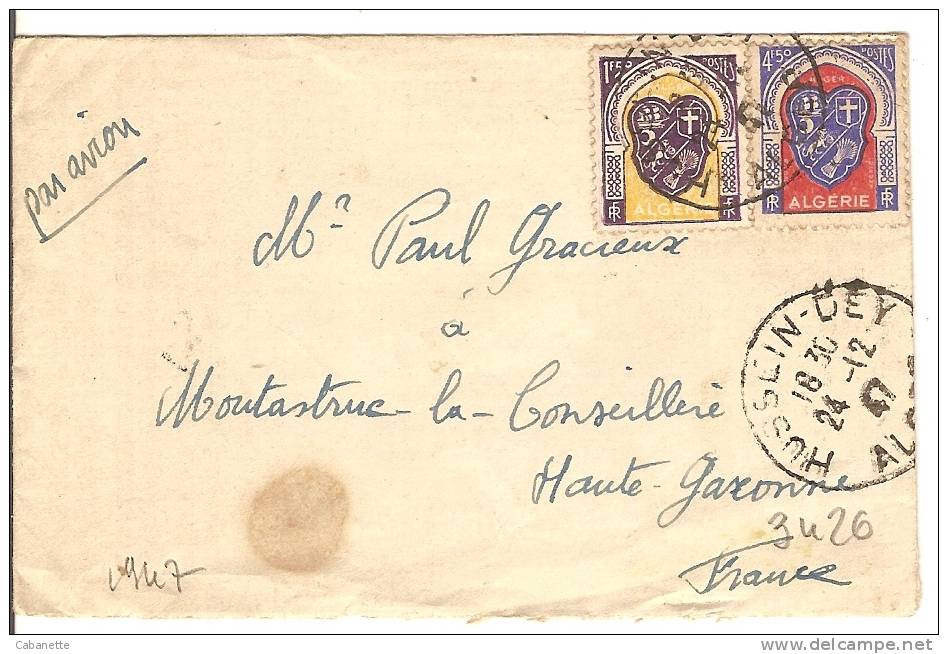 par avion
1F50 POSTES
RF ALGÉRIE RF
4F50 POSTES
ALGER
RF ALGÉRIE RF
Mr Paul Gracieux
à
Montastruc-la-Conseillère
Haute-Garonne
France
HUSSEIN-DEY
18 30
24 -12
47
3426
1947
Cabanette
www.delcampe.net